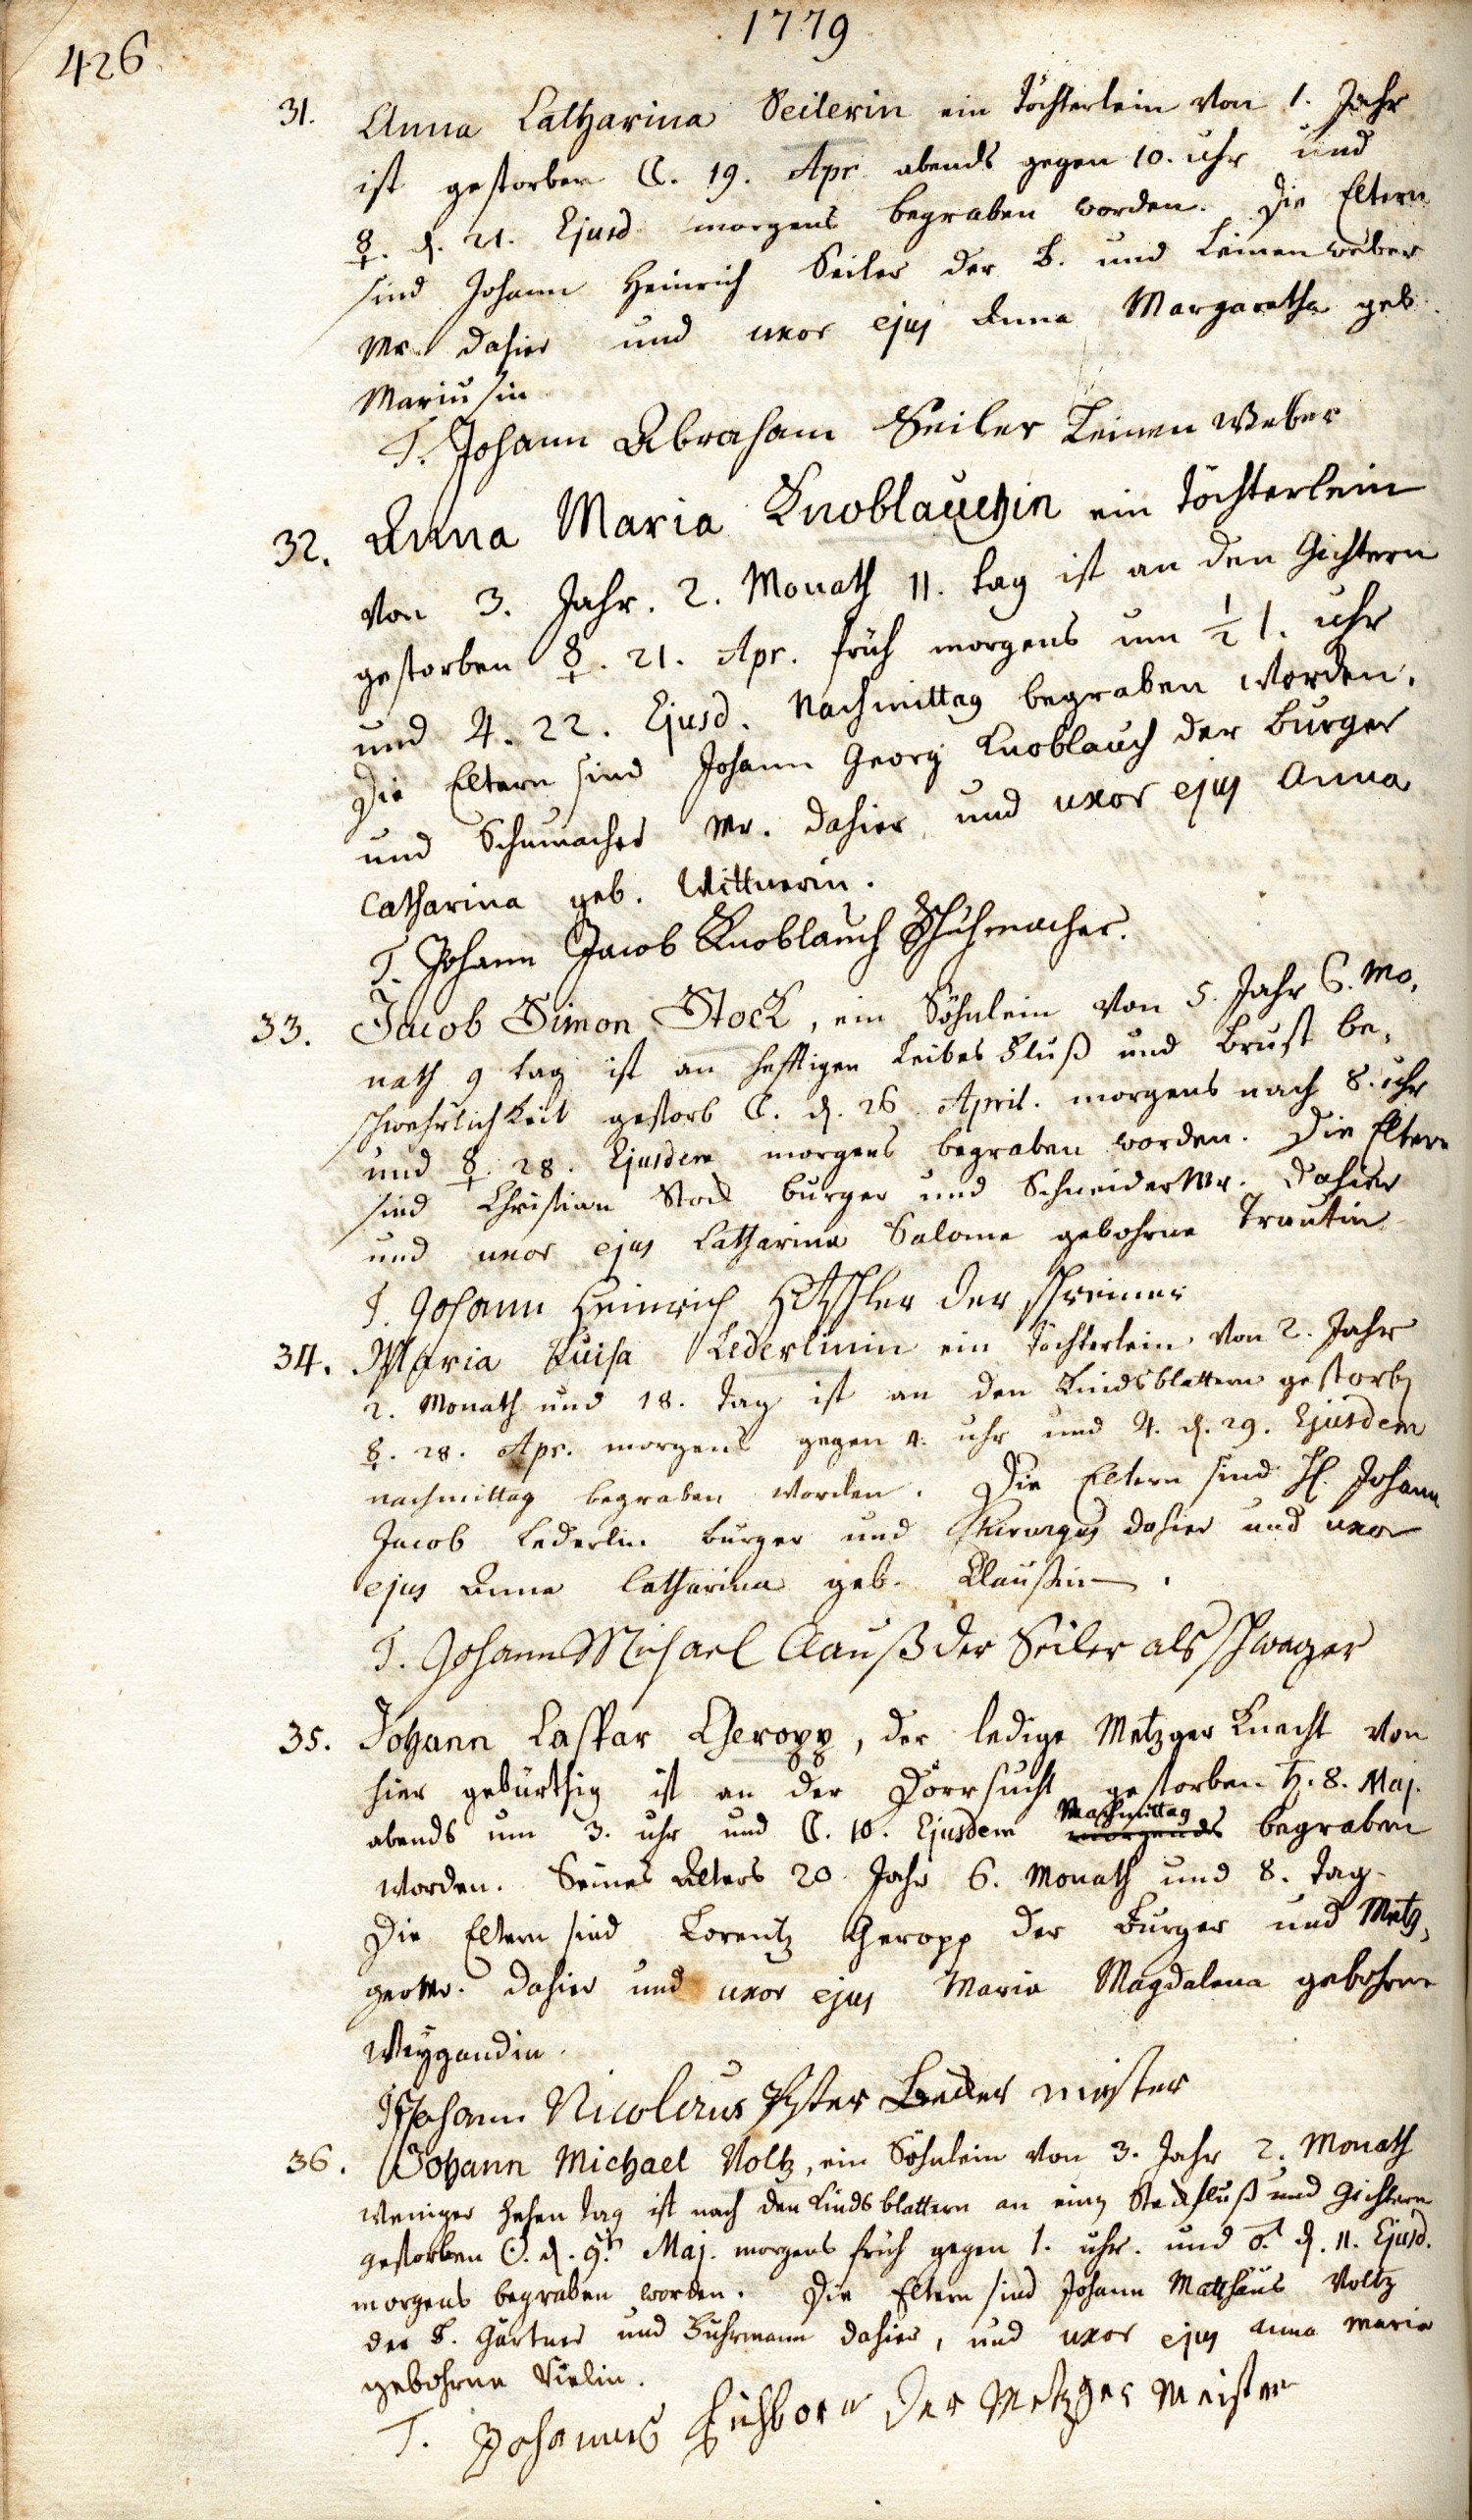 1779
426
31. Anna Catharina Seilerin ein Töchterlein von 1. Jahr
ist gestorben ☾. 19. Apr. abends gegen 10. uhr und
☿. d. 21. Ejusd. morgens begraben worden. Die Eltern
sind Johann Heinrich Seiler der B. und Leinenweber
Mr. dahier und uxor ejus Anna Margaretha geb.
Mariusin
T. Johann Abraham Seiler Leinen Weber
32. Anna Maria Knoblauchin ein Töchterlein
von 3. Jahr. 2. Monath 11. tag ist an den Gichtern
gestorben ☿. 21. Apr. früh morgens um ½ 1. uhr
und ♃. 22. Ejusd. Nachmittag begraben worden.
Die Eltern sind Johann Georg Knoblauch der Burger
und Schumacher Mr. dahier und uxor ejus Anna
Catharina geb. Wittnerin.
T. Johann Jacob Knoblauch Schuhmacher.
33. Jacob Simon Stock, ein Söhnlein von 5. Jahr 6. Mo,
nath 9 tag ist an hefftigen Leibes Fluß und Brust be,
schwehrlichkeit gestorb ☾. d. 26. April. morgens nach 8. uhr
und ☿. 28. Ejusdem morgens begraben worden. Die Eltern
sind Christian Stock burger und Schneider Mr. dahier
und uxor ejus Catharina Salome gebohrne Trautin
T. Johann Heinrich der schreiner
34. Maria Luisa Lederlinin ein Töchterlein von 2. Jahr
2. Monath und 18. tag ist an den Kindsblattern gestorben
☿. 28. Apr. morgens gegen 4. uhr und ♃. d. 29. Ejusdem
nachmittag begraben worden. Die Eltern sind H. Johann
Jacob Lederlin burger und Chirurgus dahier und uxor
ejus Anna Catharina geb. Claußin.
T. Johann Michael Clauß der Seiler als schwager
35. Johann Caspar Geropp, der ledige Metzger Knecht von
hier gebürthig ist an der Dörrsucht gestorben ♄. 8. Maj.
abends um 3. uhr und ☾. 10. Ejusdem morgends Nachmittag begraben
worden. Seines Alters 20 Jahr 6. Monath und 8. tag.
Die Eltern sind Lorentz Geropp der Burger und Metz,
ger Mr. dahier und uxor ejus Maria Magdalena gebohrne
Weygandin.
T. Johann Nicolaus Becker meister
36. Johann Michael Voltz, ein Söhnlein von 3. Jahr 2. Monath
weniger zehen tag ist nach den Kindsblattern an einem Steckfluß und Gichtern
gestorben ☉. d. 9. Maj. morgens früh gegen 1. uhr. und ♂. d. 11. Ejusd.
morgens begraben worden. Die Eltern sind Johann Matthäus Voltz
der B. Gärtner und Fuhrmann dahier, und uxor ejus Anna Maria
gebohrne
T. Johannes Eichborn der Metzger Meister